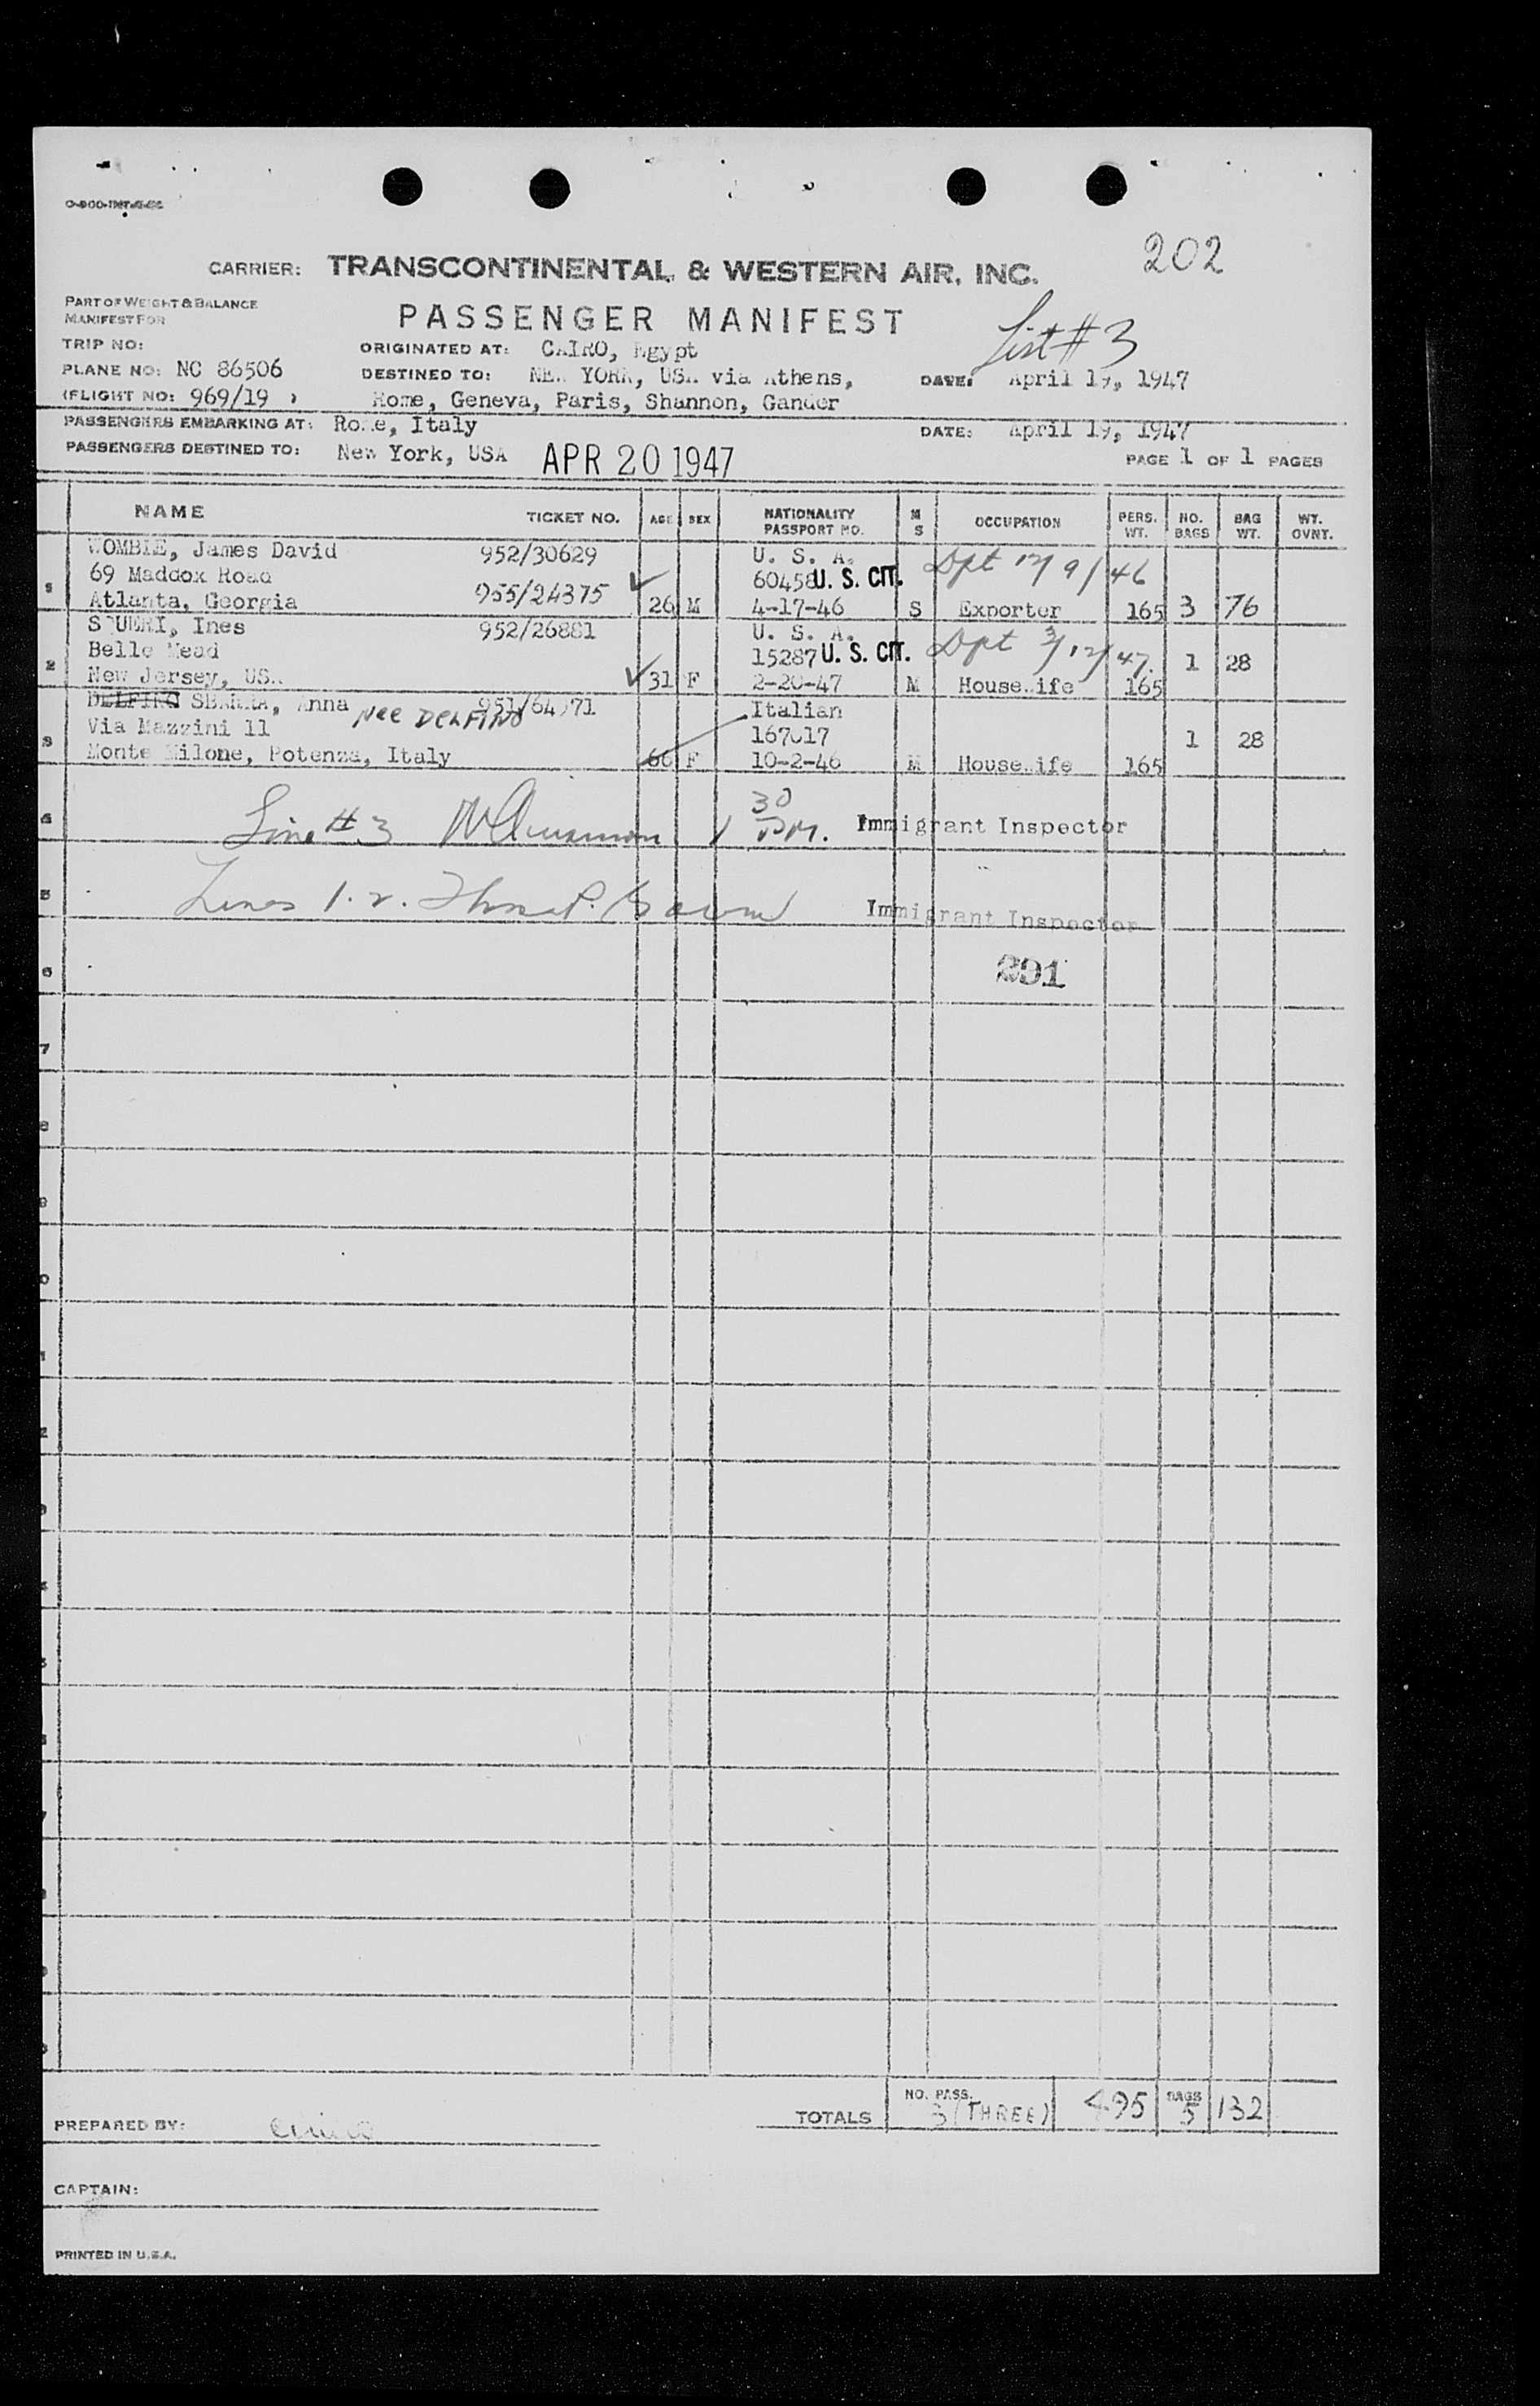 202
CARRIER: TRANSCONTINENTAL & WESTERN AIR, INC.
PART OF WEIGHT & BALANCE
MANIFEST FOR
PASSENGER MANIFEST
List # 3
TRIP NO:
ORIGINATED AT: CAIRO, Egypt
PLANE NO: NC 86506
DESTINED TO: NEW YORK, USA via Athens,
DATE: April 19, 1947
(FLIGHT NO: 969/19 )
Rome, Geneva, Paris, Shannon, Gander
PASSENGERS EMBARKING AT: Rome, Italy
DATE: April 19, 1947
PASSENGERS DESTINED TO: New York, USA APR 20 1947
PAGE 1 OF 1 PAGES
NAME TICKET NO. AGE SEX NATIONALITY PASSPORT NO. M S OCCUPATION PERS. WT. NO. BAGS BAG WT. WT. OVNT.
WOMBLE, James David 952/30629 U. S. A. Dpt 12/9/46
69 Maddox Road 955/24375 60458 U. S. CIT.
1 Atlanta, Georgia 26 M 4-17-46 S Exporter 165 3 76
SQUERI, Ines 952/26881 U. S. A. Dpt 3/12/47.
2 Belle Mead 15287 U. S. CIT. 1 28
New Jersey, USA 31 F 2-20-47 M Housewife 165
DELFINO SBARRA, Anna nee DELFINO 951/64971 Italian
3 Via Mazzini 11 167017 1 28
Monte Milone, Potenza, Italy 66 F 10-2-46 M Housewife 165
4 Line # 3 1 30 P.M. Immigrant Inspector
5 Lines 1. 2. Immigrant Inspector
6 291
7
8
9
0
1
2
3
TOTALS NO. PASS. 3 (THREE) 495 BAGS 5 132
PREPARED BY:
CAPTAIN:
PRINTED IN U.S.A.